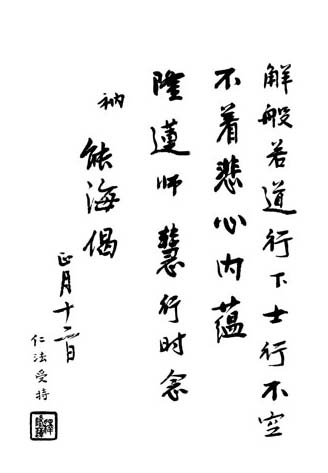 解般若道行下士行不空
不着悲心内蕴
隆莲师慧行时念
衲
能海偈
正月十二日
仁法受持